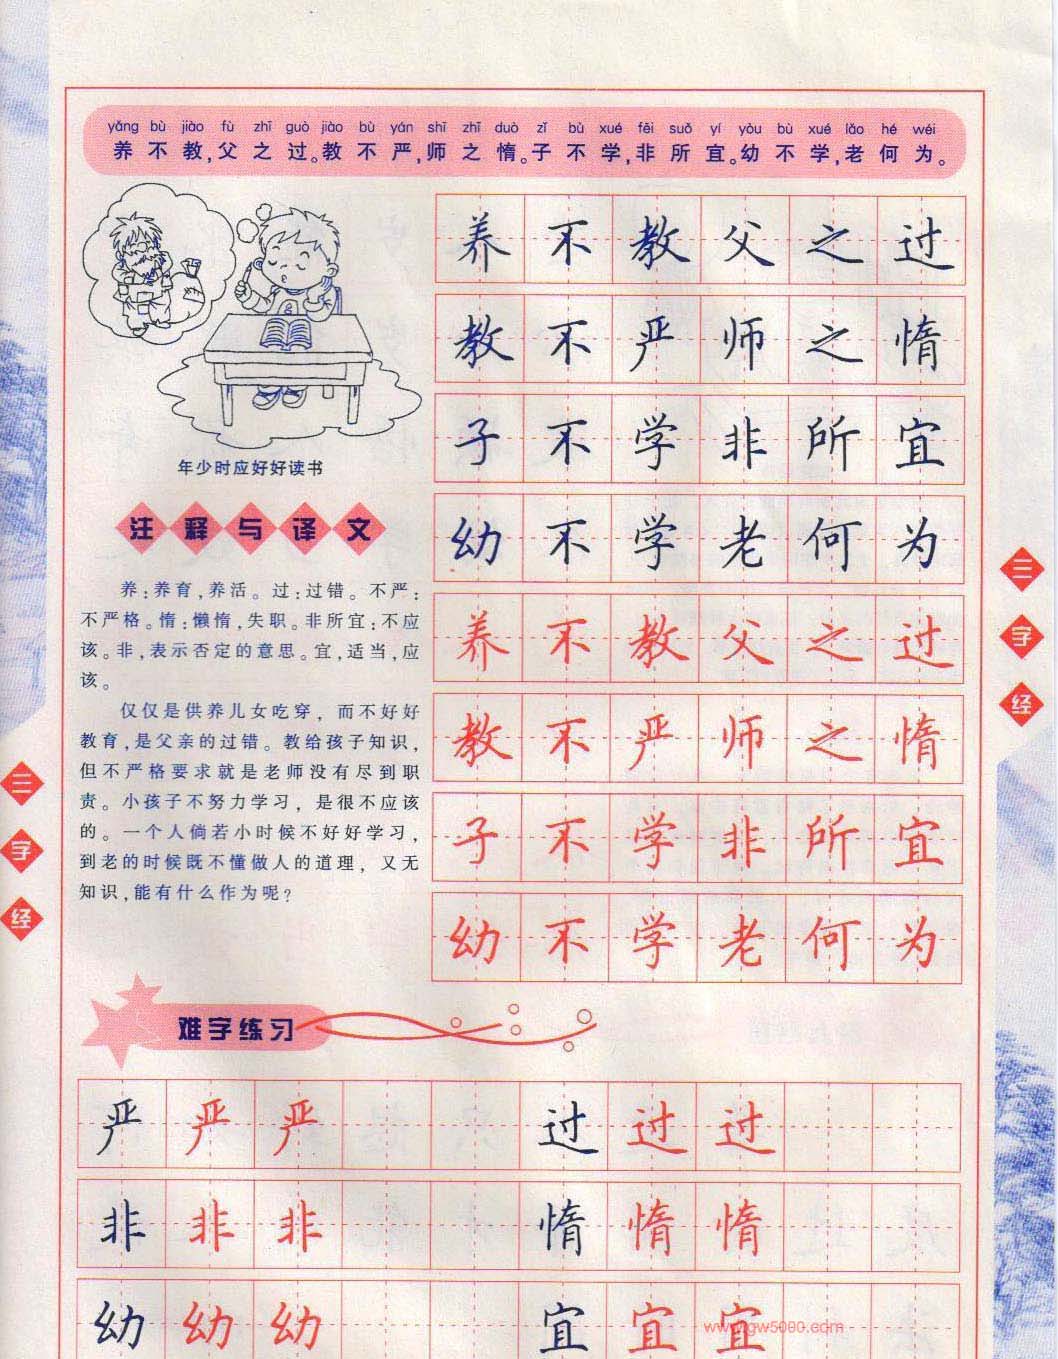 yǎng bù jiào fù zhī guò jiào bù yán shī zhī duò zǐ bù xué fēi suǒ yí yòu bù xué lǎo hé wéi
养不教,父之过。教不严,师之惰。子不学,非所宜。幼不学,老何为。
年少时应好好读书
注释与译文
养:养育,养活。过:过错。不严:
不严格。惰:懒惰,失职。非所宜:不应
该。非,表示否定的意思。宜,适当,应
该。
仅仅是供养儿女吃穿,而不好好
教育,是父亲的过错。教给孩子知识,
但不严格要求就是老师没有尽到职
责。小孩子不努力学习,是很不应该
的。一个人倘若小时候不好好学习,
到老的时候既不懂做人的道理,又无
知识,能有什么作为呢?
养不教父之过
教不严师之惰
子不学非所宜
幼不学老何为
养不教父之过
教不严师之惰
子不学非所宜
幼不学老何为
三字经
三字经
难字练习
严严严 过过过
非非非 惰惰惰
幼幼幼 宜宜宜
www.gw5000.com